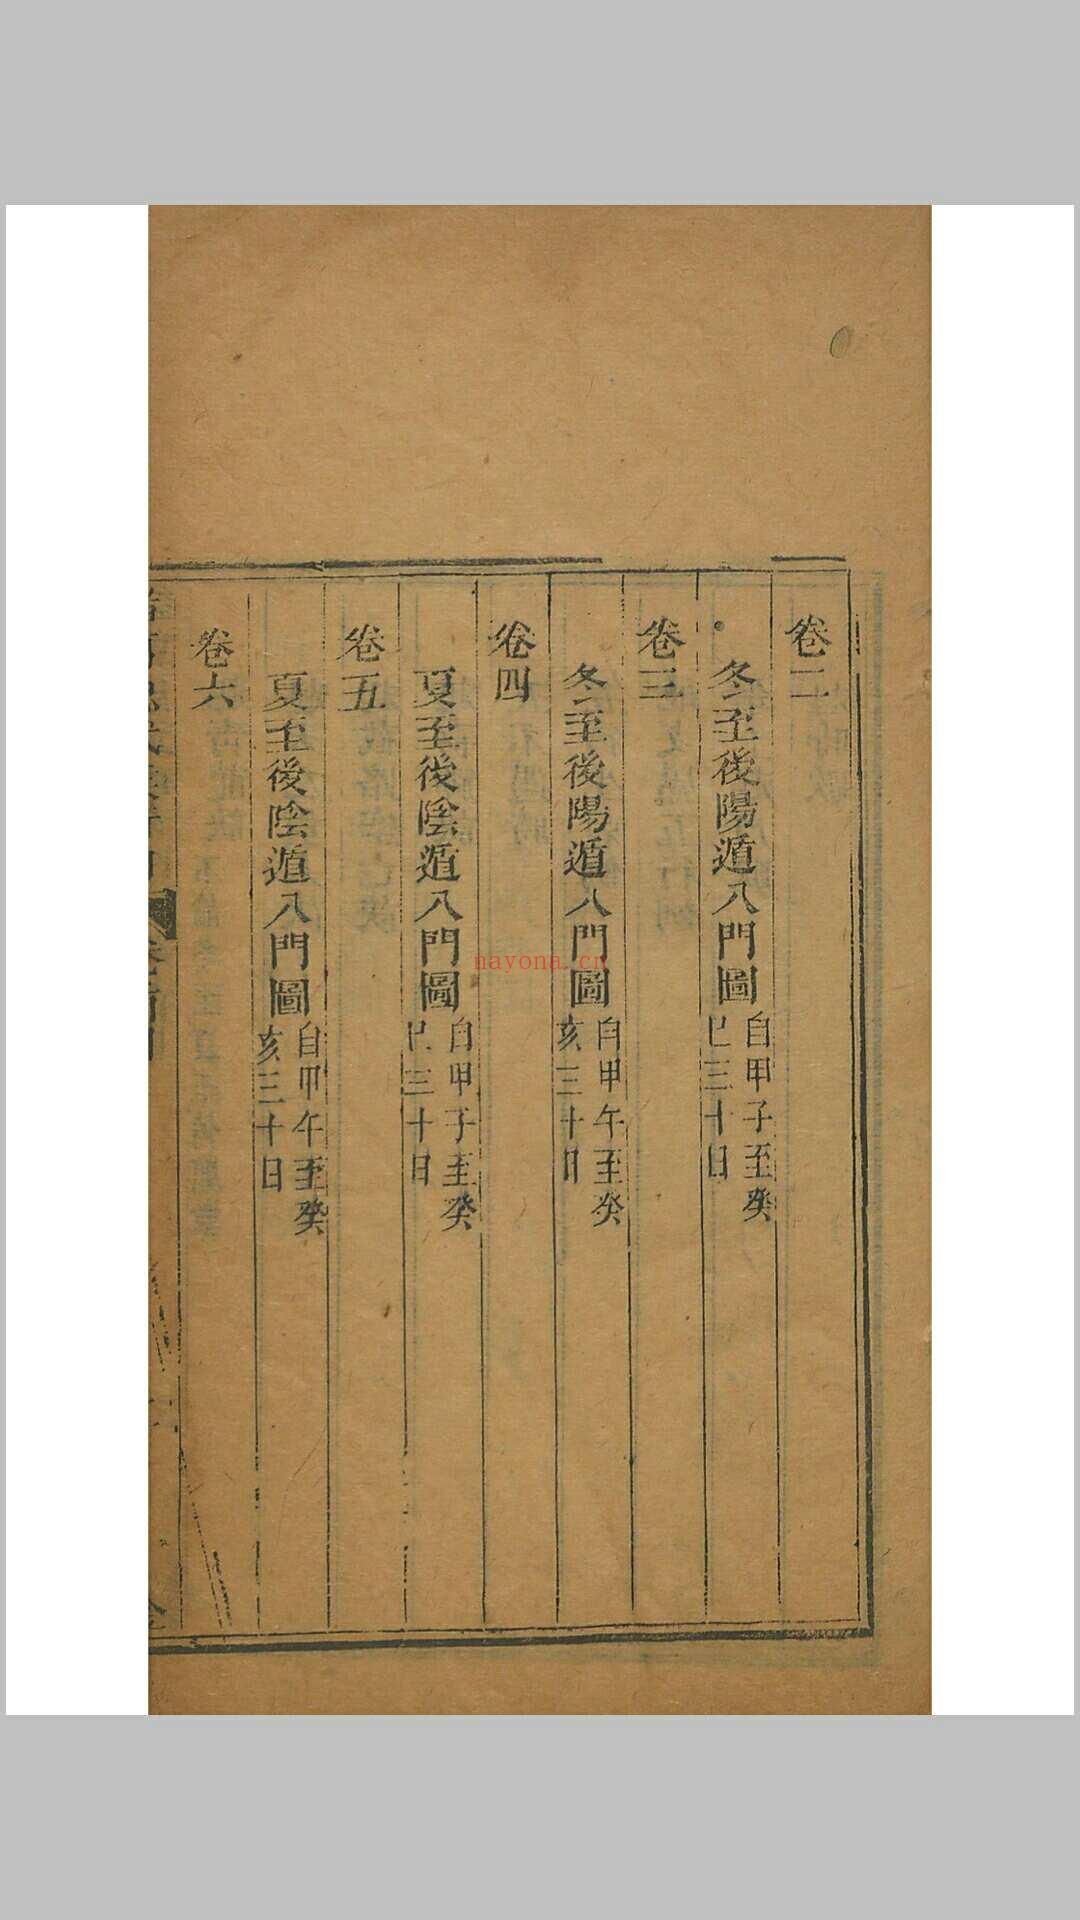 卷二
冬至後陽遁八門圖自甲子至癸
巳三十日
卷三
冬至後陽遁八門圖自甲午至癸
亥三十日
卷四
夏至後陰遁八門圖自甲子至癸
巳三十日
卷五
夏至後陰遁八門圖自甲午至癸
亥三十日
卷六
nayona.cn